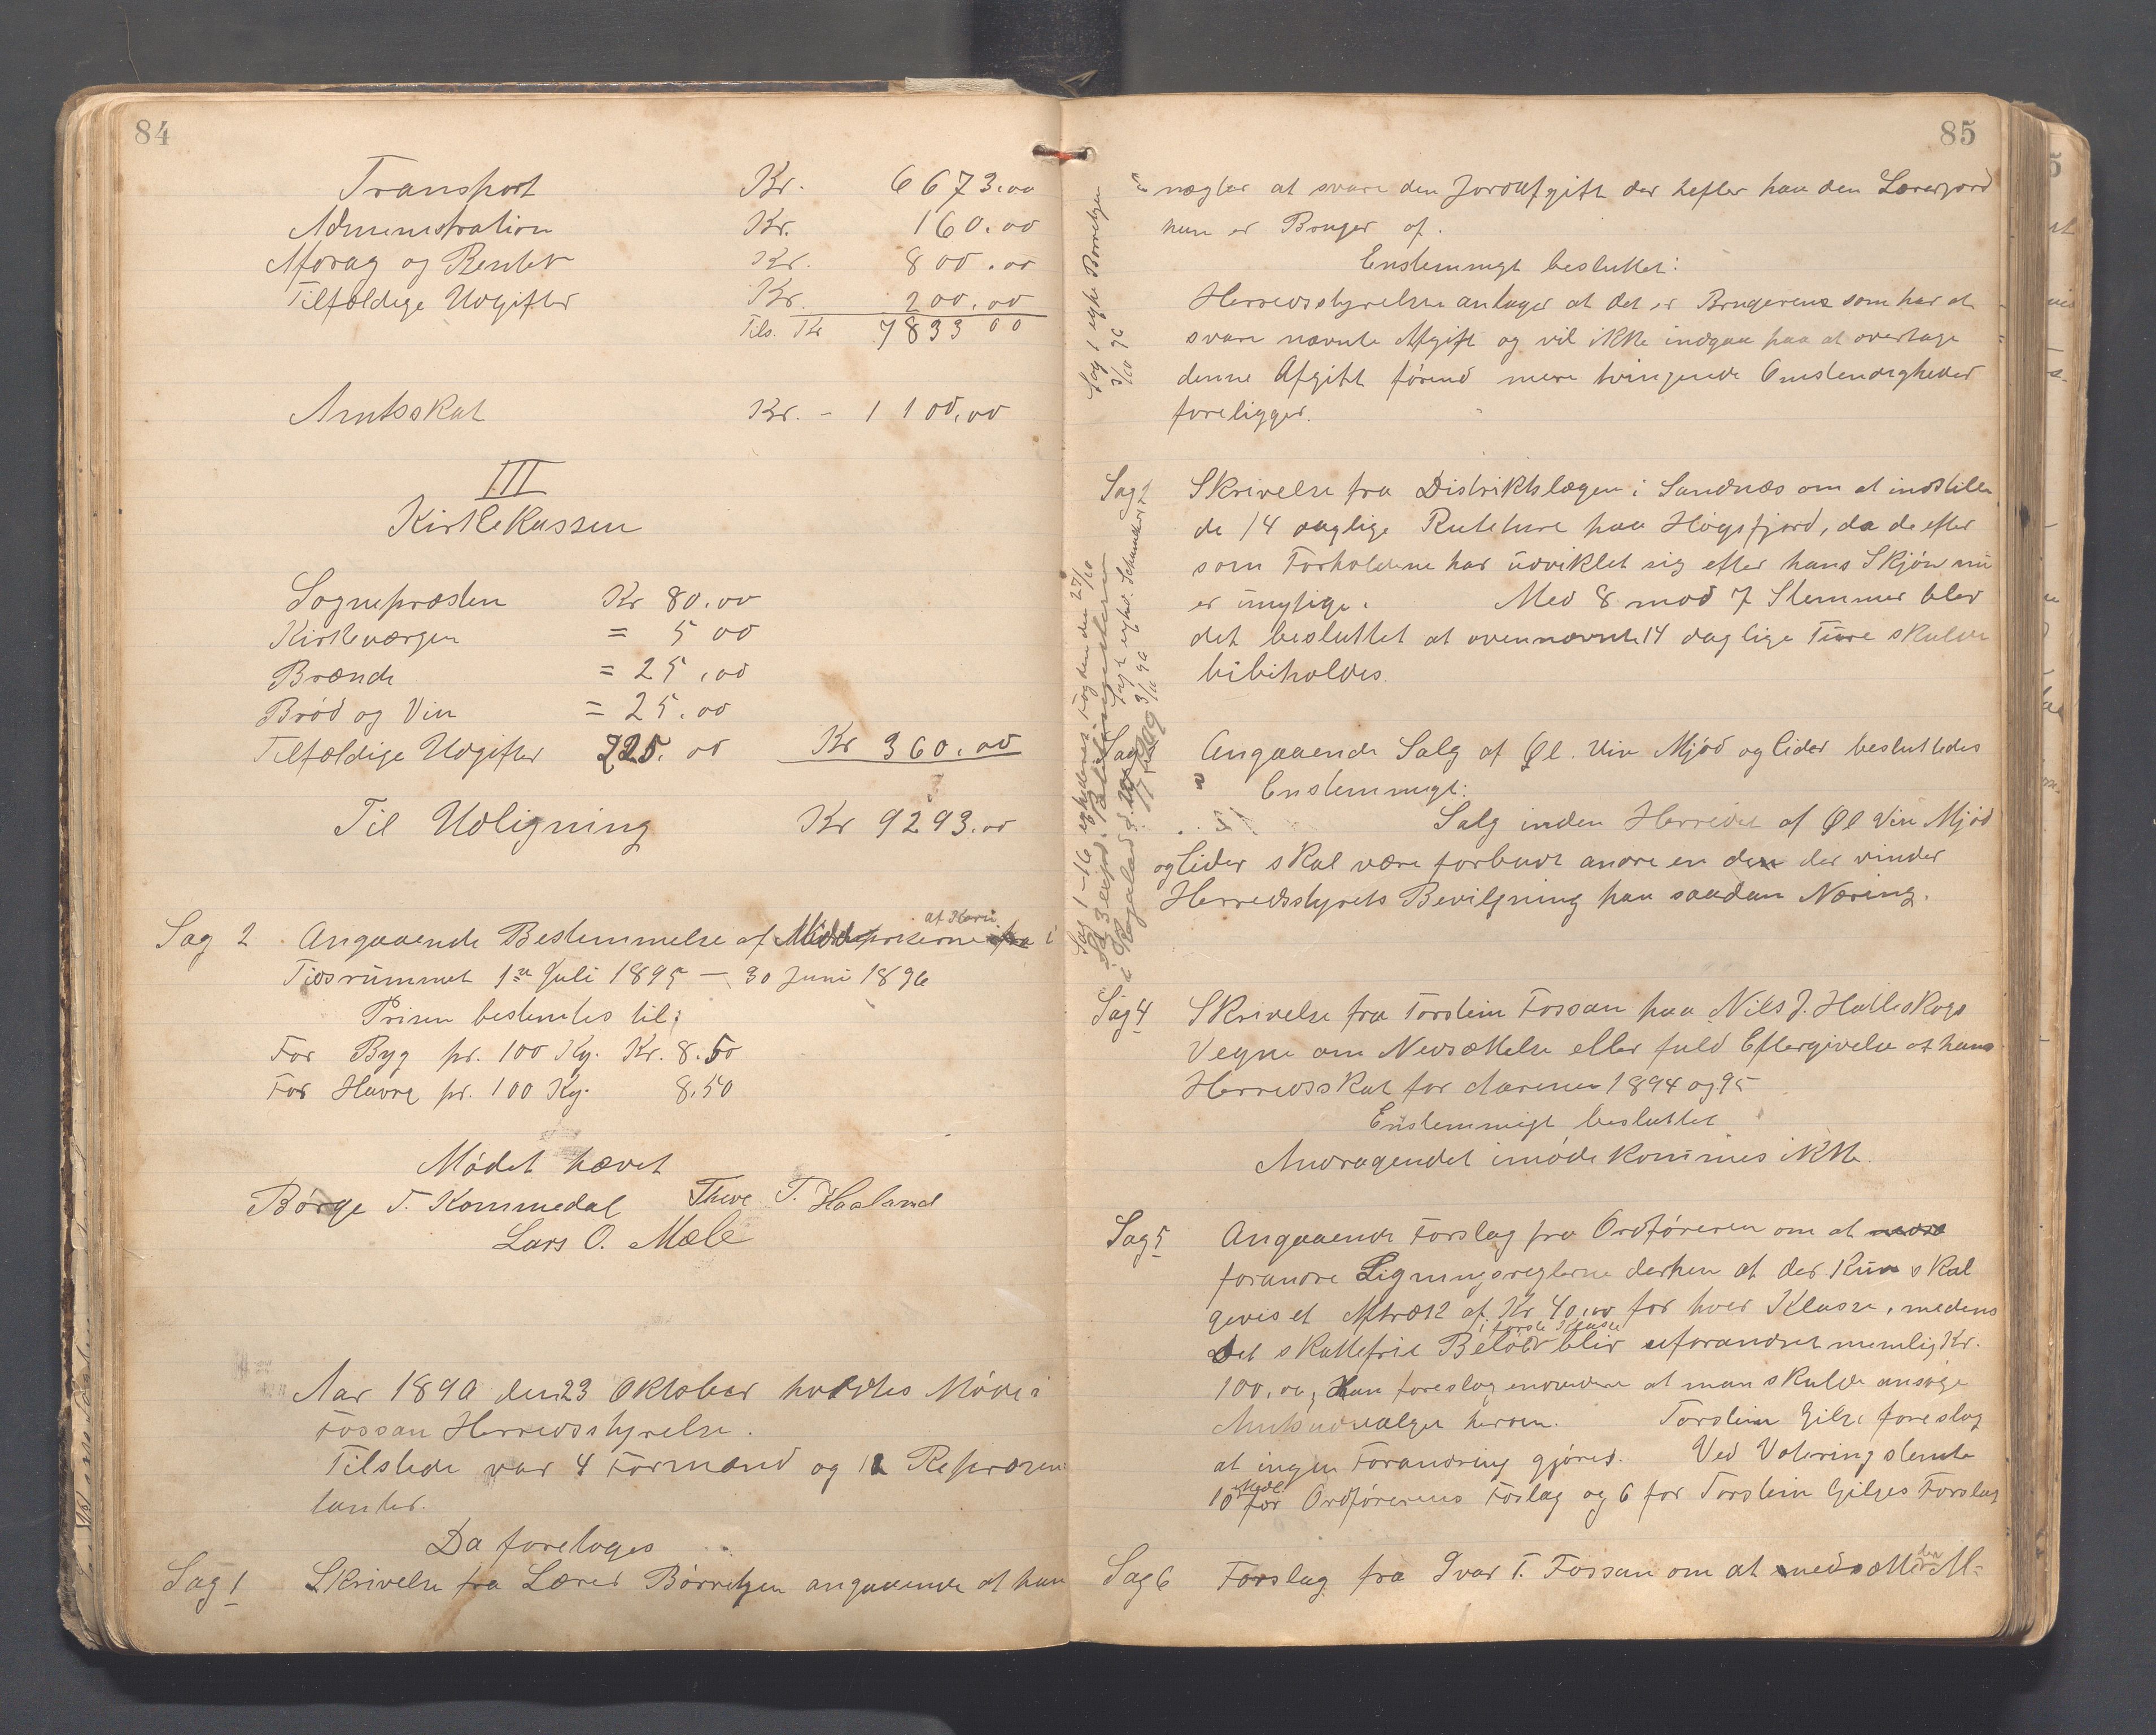 84
Transport Kr. 6673.00
Administration Kr. 160.00
Afdrag og Renter Kr. 800.00
Tilfældige Udgifter Kr. 200.00
Tils. Kr 7833 00
Amtsskat Kr. - 1100.00
III
Kirkekassen
Sognepræsten Kr 80.00
Kirkeværgen = 5 00
Brænde = 25.00
Brød og Vin = 25.00
Tilfældige Udgifter 225.00 Kr 360.00
Til Udligning Kr 9293.00
Sag 2 Angaaende Bestemmelse af Middelpriserne i
af Korn
Tidsrummet 1ste Juli 1895 — 30 Juni 1896
Prisen bestemtes til:
For Byg pr. 100 Kg. Kr. 8.50
For Havre pr. 100 Kg. 8.50
Mødet hævet
Børge T. Kommedal Thore T. Haaland
Lars O. Mæle
Aar 1896 den 23 Oktober holdtes Møde i
Fossan Herredsstyrelse.
Tilstede var 4 Formænd og 12 Repræsen
tanter.
Da foretoges
Sag 1 Skrivelse fra Lærer Børretzen angaaende at han
85
nægter at svare den Jordafgift der hefter paa den Lærerjord
han er Bruger af.
Enstemmigt besluttet:
Herredsstyrelsen antager at det er Brugeren som har at
svare nævnte Afgift og vil ikke indgaa paa at overtage
denne Afgift førend mere tvingende Omstendigheder
foreligger.
Sag 2 Skrivelse fra Distriktslægen i Sandnæs om at indstille
de 14 daglige Ruteture paa Høgsfjord, da de efter
som Forholdene har udviklet sig efter hans Skjøn nu
er unytige. Med 8 mod 7 Stemmer blev
det besluttet at ovennævnte 14 daglige Ture skulde
bibeholdes.
Sag 3 Angaaende Salg af Øl. Vin Mjød og Cider besluttedes
Enstemmigt:
Salg inden Herredet af Øl Vin Mjød
og Cider skal være forbudt andre en den der vinder
Herredsstyrets Bevilgning paa saadan Næring.
Sag 4 Skrivelse fra Torstein Fossan paa Nils J. Halleskogs
Vegne om Nedsættelse eller fuld Eftergivelse af hans
Herredsskat for Aarene 1894 og 95
Enstemmigt besluttet
Andragendet imødekommes ikke.
Sag 5 Angaaende Forslag fra Ordføreren om at
forandre Ligningsreglerne derhen at der kun skal
gives et Aftræk af Kr. 40.00 for hver Klasse, medens
i første Klasse
Det skattefrie Beløb blir uforandret nemlig Kr.
100.00, Han foreslog endvidere at man skulde ansøge
Amtsudvalget herom. Torstein Gilje foreslog
at ingen Forandring gjøres. Ved Votering stemte
Medl.
10 for Ordførerens Forslag og 6 for Torstein Giljes Forslag
Sag 6 Forslag fra Ivar T. Fossan om at nedsætte den Af-
Sag 1 Børretzen
3/10 96